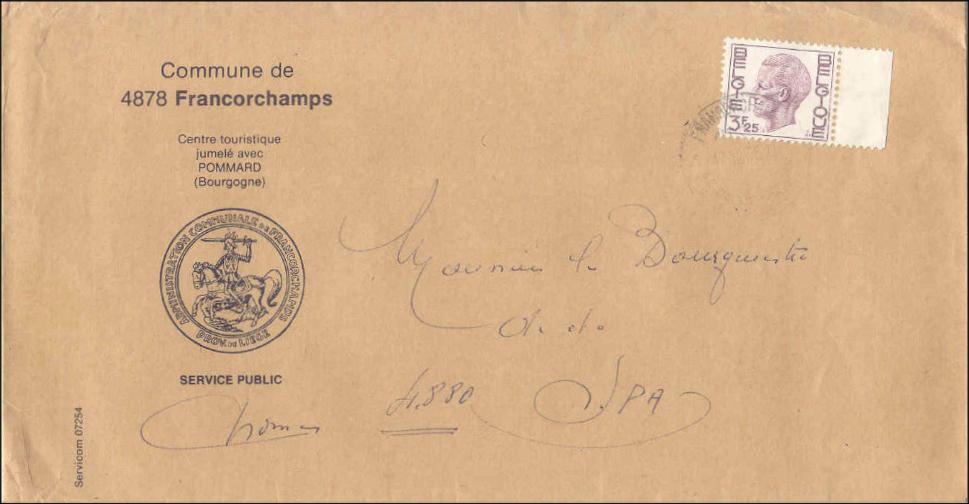 Commune de
4878 Francorchamps
Centre touristique
jumelé avec
POMMARD
(Bourgogne)
ADMINISTRATION COMMUNALE DE FRANCORCHAMPS
PROV. DE LIEGE
SERVICE PUBLIC
Servicom 07254
BELGIE
BELGIQUE
3F25
Monsieur le Bourgmestre
4.880 SPA